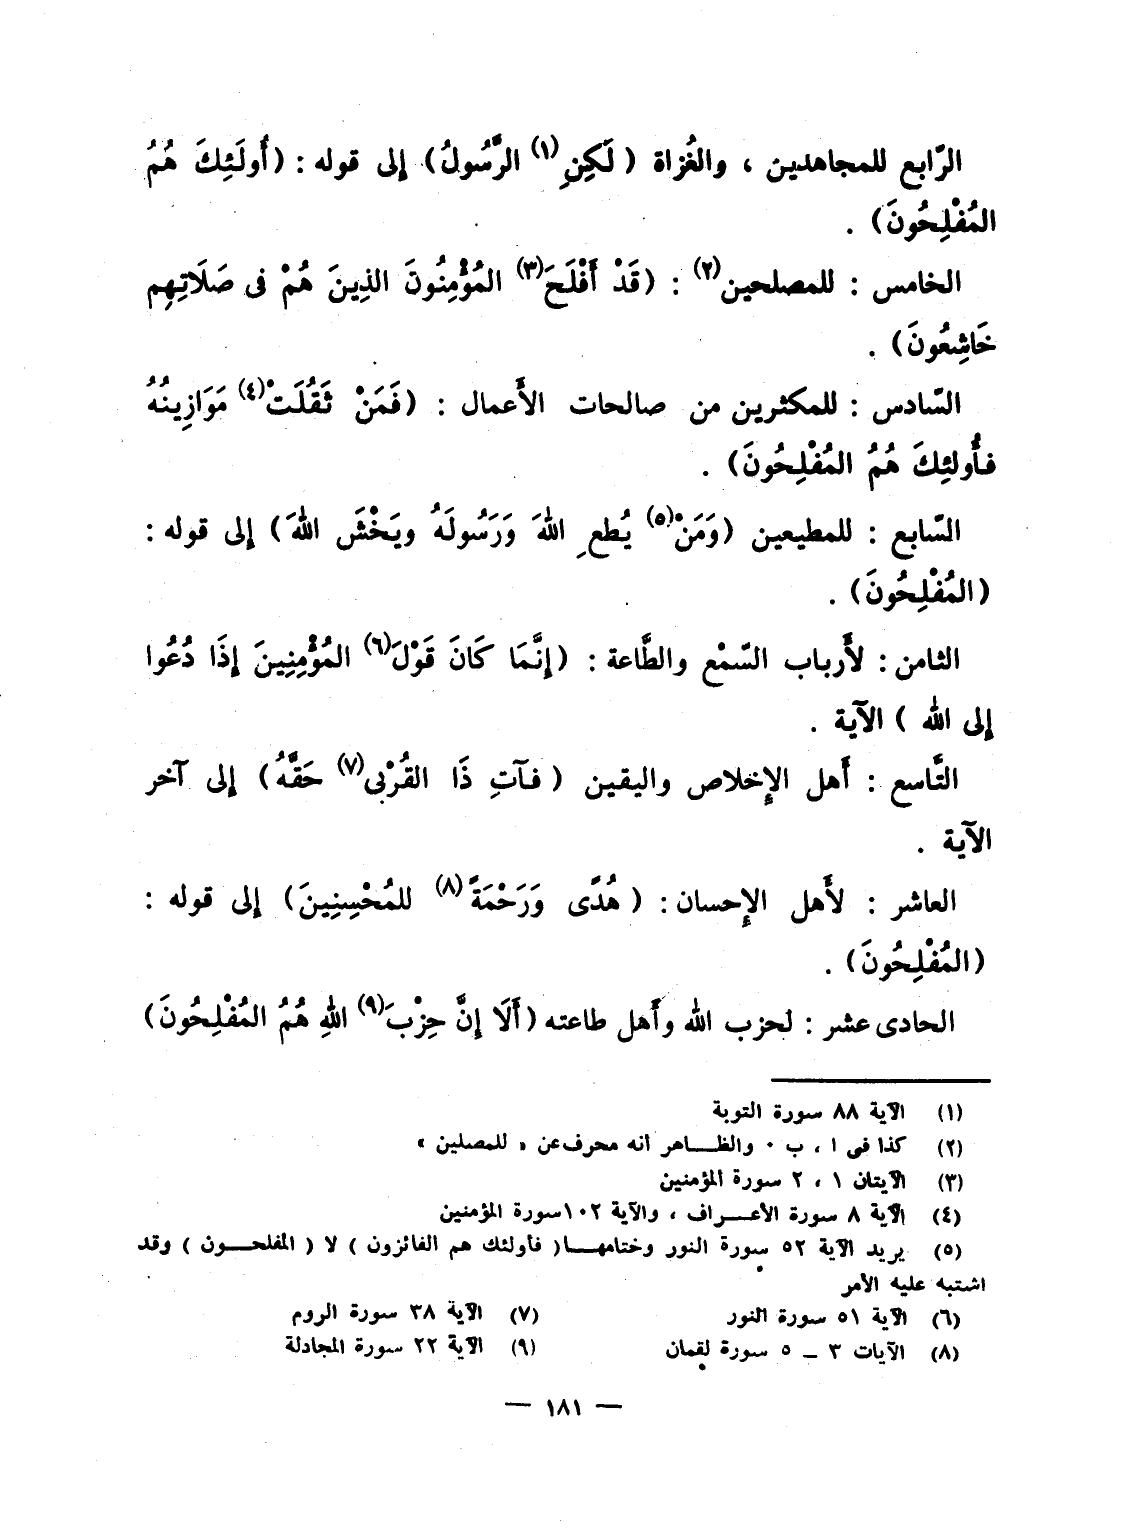 الرّابع للمجاهدين ، والغُزاة ( لَكِنِ(١) الرَّسُولُ) إلى قوله : (أُولَئِكَ هُمُ
المُفْلِحُونَ) .
الخامس : للمصلحين(٢) : (قَدْ أَفْلَحَ(٣) المُؤْمِنُونَ الذِينَ هُمْ فى صَلَاتِهِم
خَاشِعُونَ) .
السّادس : للمكثرين من صالحات الأَعمال : (فَمَنْ ثَقُلَتْ(٤) مَوَازِينُهُ
فأُولئِكَ هُمُ المُفْلِحُونَ) .
السّابع : للمطيعين (وَمَنْ(٥) يُطع ِ اللهَ وَرَسُولَهُ ويَخْشَ اللهَ) إلى قوله :
(المُفْلِحُونَ) .
الثامن : لأَرباب السّمْع والطَّاعة : (إنَّمَا كَانَ قَوْلَ(٦) المُؤْمِنِينَ إذَا دُعُوا
إلى الله ) الآية .
التَّاسع : أَهل الإِخلاص واليقين ( فآتِ ذَا القُرْبى(٧) حَقَّهُ) إلى آخر
الآية .
العاشر : لأَهل الإِحسان : ( هُدًى وَرَحْمَةً(٨) للمُحْسِنِينَ) إلى قوله :
(المُفْلِحُونَ) .
الحادى عشر : لحزب الله وأَهل طاعته (أَلَا إنَّ حِزْبَ(٩) اللهِ هُمُ المُفْلِحُونَ)
(١) الآية ٨٨ سورة التوبة
(٢) كذا فى ا ، ب ٠ والظـــاهر أنه محرف عن « للمصلين »
(٣) الآيتان ١ ، ٢ سورة المؤمنين
(٤) الآية ٨ سورة الأعـــراف ، والآية ١٠٢ سورة المؤمنين
(٥) يريد الآية ٥٢ سورة النور وختامهـــا ( فأولئك هم الفائزون ) لا ( المفلحـــون ) وقد
اشتبه عليه الأمر
(٦) الآية ٥١ سورة النور (٧) الآية ٣٨ سورة الروم
(٨) الآيات ٣ ــ ٥ سورة لقمان (٩) الآية ٢٢ سورة المجادلة
— ١٨١ —